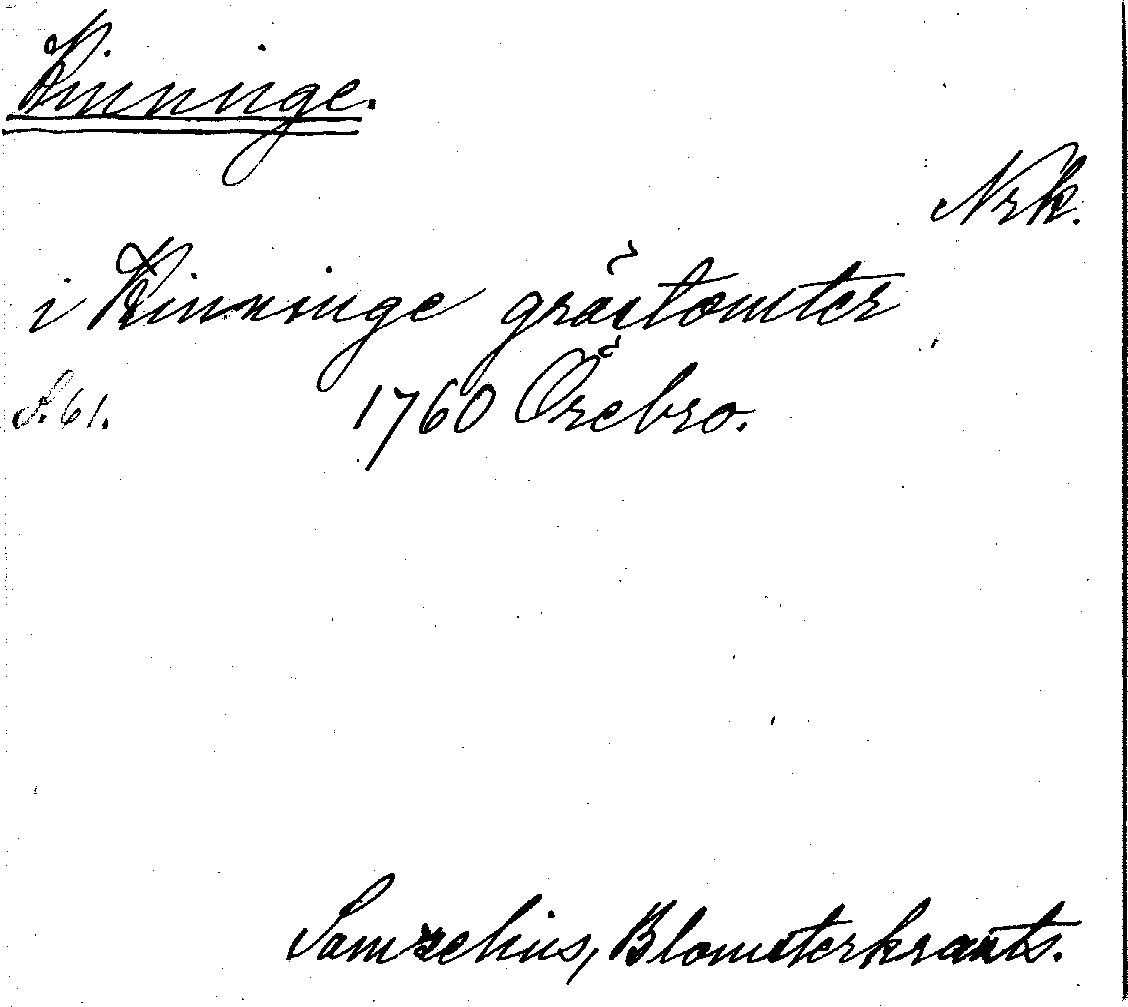 Rinninge.
Nrk.
i Rinninge grästomter
S. 61. 1760 Örebro.
Samzelius, Blomsterkrants.